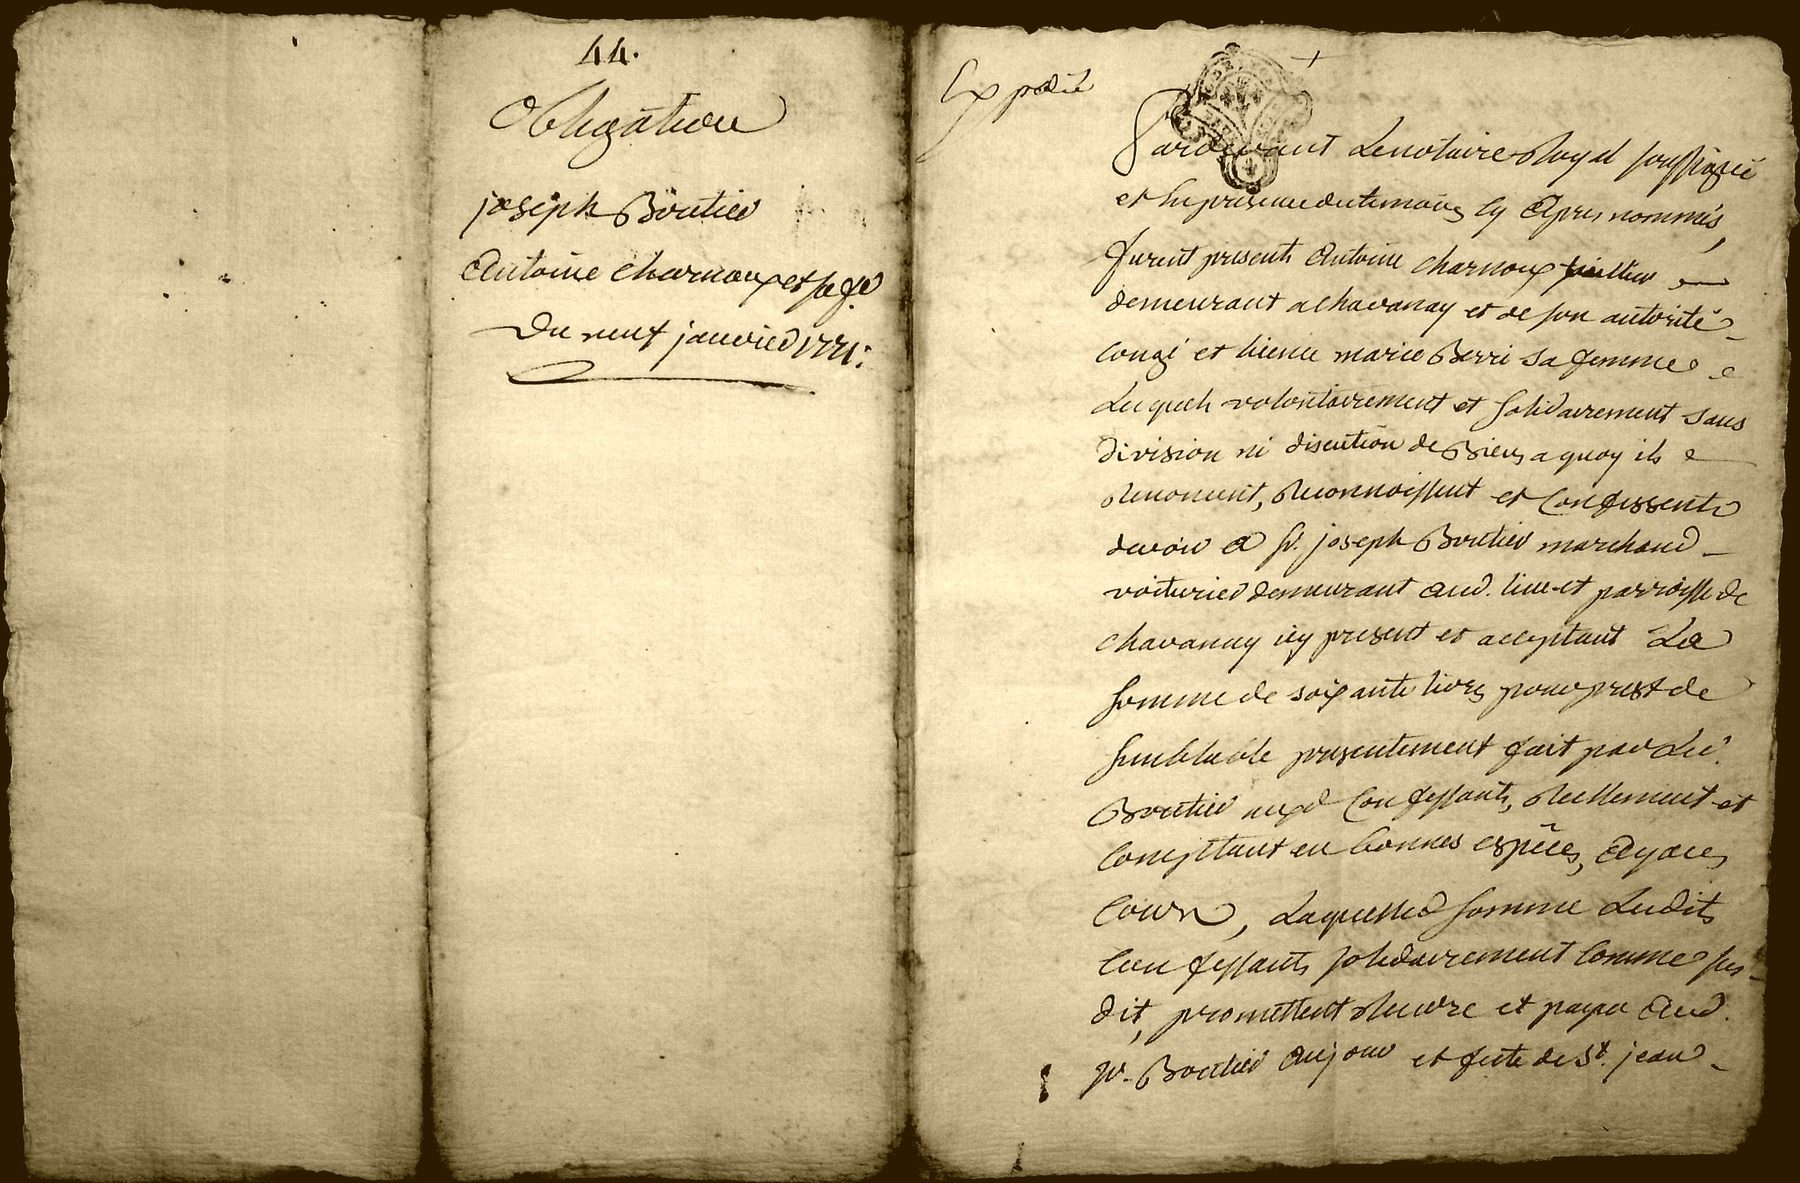 44.
Obligation
joseph Boutier
Antoine charnoux et sa fe
Du neuf janvier 1771:
Expedié
Pardevant Le notaire Royal soussigné
et En presence des temoins cy Apres nommés,
furent presents Antoine charnoux
demeurant a chavanay et de son autorité
congé et licence marie Berri sa femme
Lesquels volontairement et solidairement sans
division ni discution de Biens a quoy ils
Renoncent, Reconnoissent et Confessent
devoir a sr. joseph Boutier marchand
voiturier demeurant aud. lieu et parroisse de
chavanay icy present et acceptant La
somme de soixante livres pour prest de
semblable presentement fait par Led.
Boutier auxd Confessants, Reellement et
comptant en bonnes espèces, Ayant
Cours, Laquelle somme Lesdits
Confessants solidairement comme sus
dit, promettent Rendre et payer Aud.
sr. Boutier Au jour et feste de St. jean